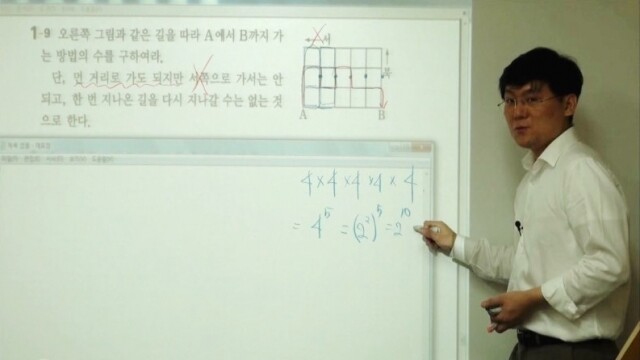 1-9 오른쪽 그림과 같은 길을 따라 A에서 B까지 가
는 방법의 수를 구하여라.
단, 먼 거리로 가도 되지만 서쪽으로 가서는 안
되고, 한 번 지나온 길을 다시 지나갈 수는 없는 것
으로 한다.
서
북
A B
4×4×4×4×4
= 4^5 = (2^2)^5 = 2^10